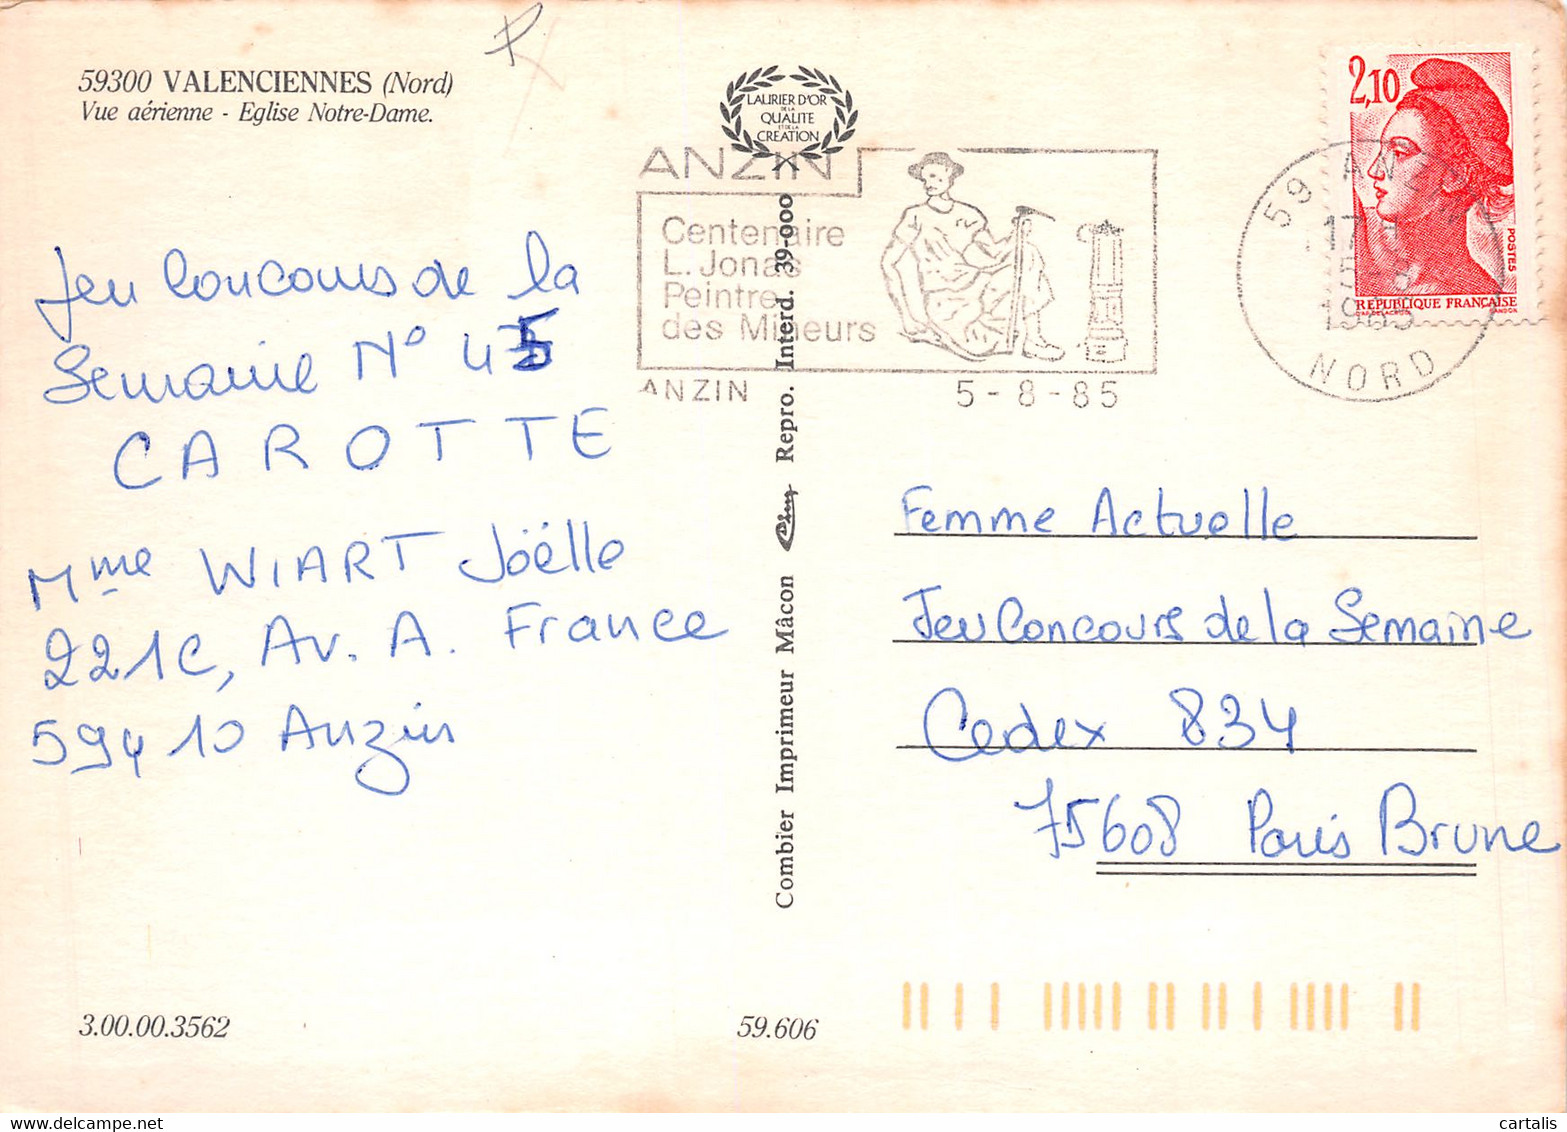 59300 VALENCIENNES (Nord)
Vue aérienne - Eglise Notre-Dame.
LAURIER D'OR
DE LA
QUALITE
ET DE LA
CREATION
ANZIN
Centenaire
L. Jonas
Peintre
des Mineurs
ANZIN 5-8-85
59 ANZIN
17
5-8
1985
NORD
2,10
POSTES
REPUBLIQUE FRANÇAISE
GANDON
Jeu Concours de la
Semaine N° 45
CAROTTE
Mme WIART Joëlle
221C, Av. A. France
59410 Anzin
Combier Imprimeur Mâcon Repro. Interd. 39-000
Femme Actuelle
Jeu Concours de la Semaine
Cedex 834
75608 Paris Brune
3.00.00.3562
59.606
cartalis